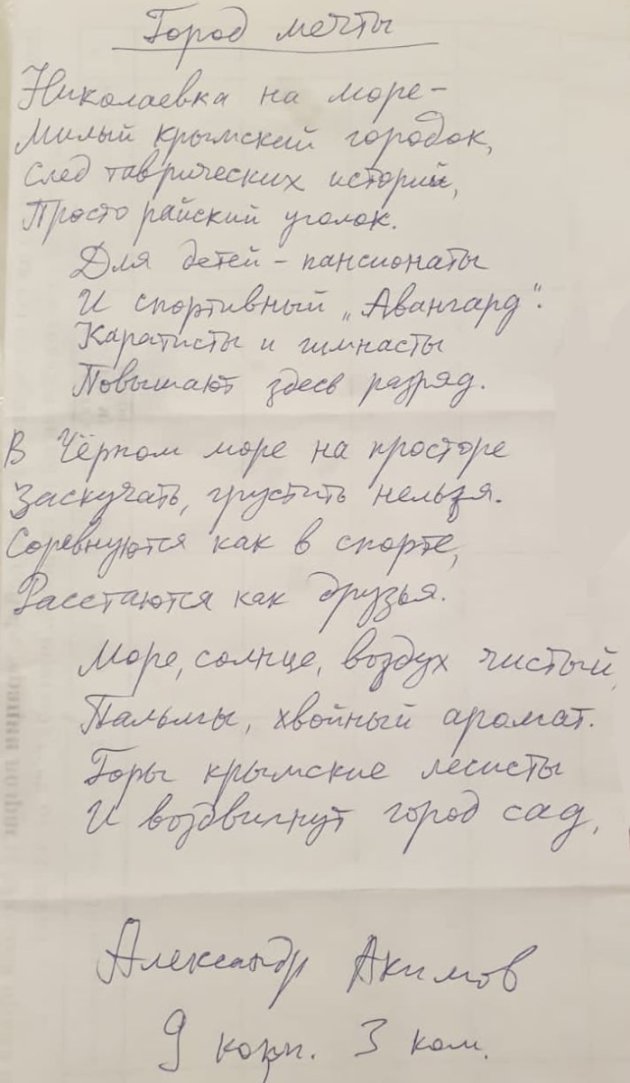 Город мечты
Николаевка на море-
Милый крымский городок,
След таврических историй,
Просто райский уголок.
Для детей - пансионаты
И спортивный „Авангард".
Каратисты и гимнасты
Повышают здесь разряд.
В Чёрном море на просторе
Заскучать, грустить нельзя.
Соревнуются как в спорте,
Расстаются как друзья.
Море, солнце, воздух чистый,
Пальмы, хвойный аромат.
Горы крымские лесисты
И воздвигнут город сад,
Александр Акимов
9 корп. 3 ком.